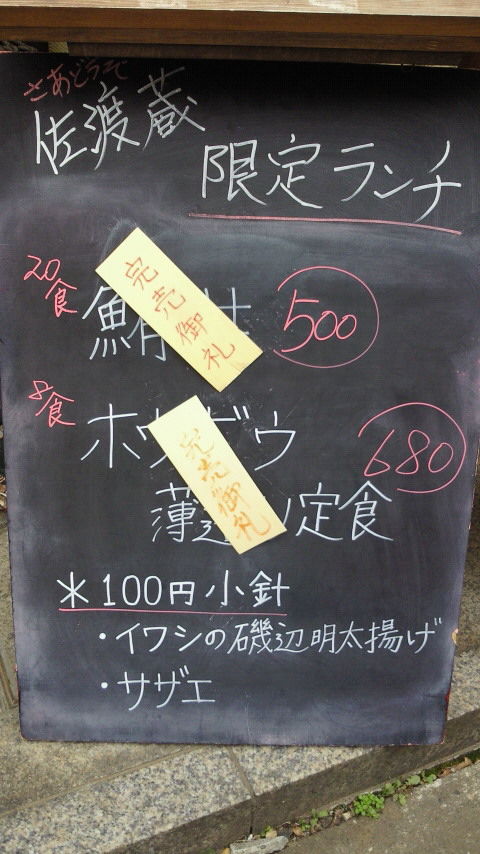 さあどうぞ
佐渡蔵
限定ランチ
20食
鮪
500
完売御礼
8食
ホウボウ
680
薄造り定食
完売御礼
＊100円小針
・イワシの磯辺明太揚げ
・サザエ